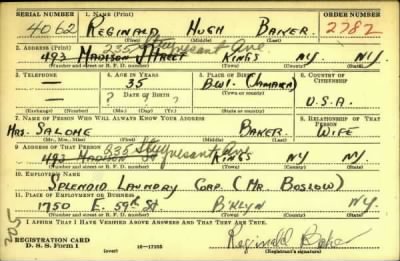 SERIAL NUMBER 1. NAME (Print) ORDER NUMBER
4062 REGINALD HUGH BAKER 2782
(First) (Middle) (Last)
2. ADDRESS (Print) 235 Stuyvesant Ave.
493 MADISON STREET KINGS N.Y. N.Y.
(Number and street or R. F. D. number) (Town) (County) (State)
3. TELEPHONE 4. AGE IN YEARS 5. PLACE OF BIRTH 6. COUNTRY OF CITIZENSHIP
— 35 B.W.I.
DATE OF BIRTH (Town or county)
— ? ? U.S.A.
(Exchange) (Number) (Mo.) (Day) (Yr.) (State or country)
7. NAME OF PERSON WHO WILL ALWAYS KNOW YOUR ADDRESS 8. RELATIONSHIP OF THAT PERSON
MRS. SALOME BAKER WIFE
(Mr., Mrs., Miss) (First) (Middle) (Last)
9. ADDRESS OF THAT PERSON 235 Stuyvesant Ave
493 MADISON ST KINGS NY NY
(Number and street or R. F. D. number) (Town) (County) (State)
10. EMPLOYER'S NAME
SPLENDID LAUNDRY CORP. (MR. BOSLOW)
11. PLACE OF EMPLOYMENT OR BUSINESS
1750 E. 59th ST B'KLYN N.Y.
(Number and street or R. F. D. number) (Town) (County) (State)
I AFFIRM THAT I HAVE VERIFIED ABOVE ANSWERS AND THAT THEY ARE TRUE.
205
REGISTRATION CARD
D. S. S. Form 1 (over) 16—17105
Reginald Baker
(Registrant's signature)